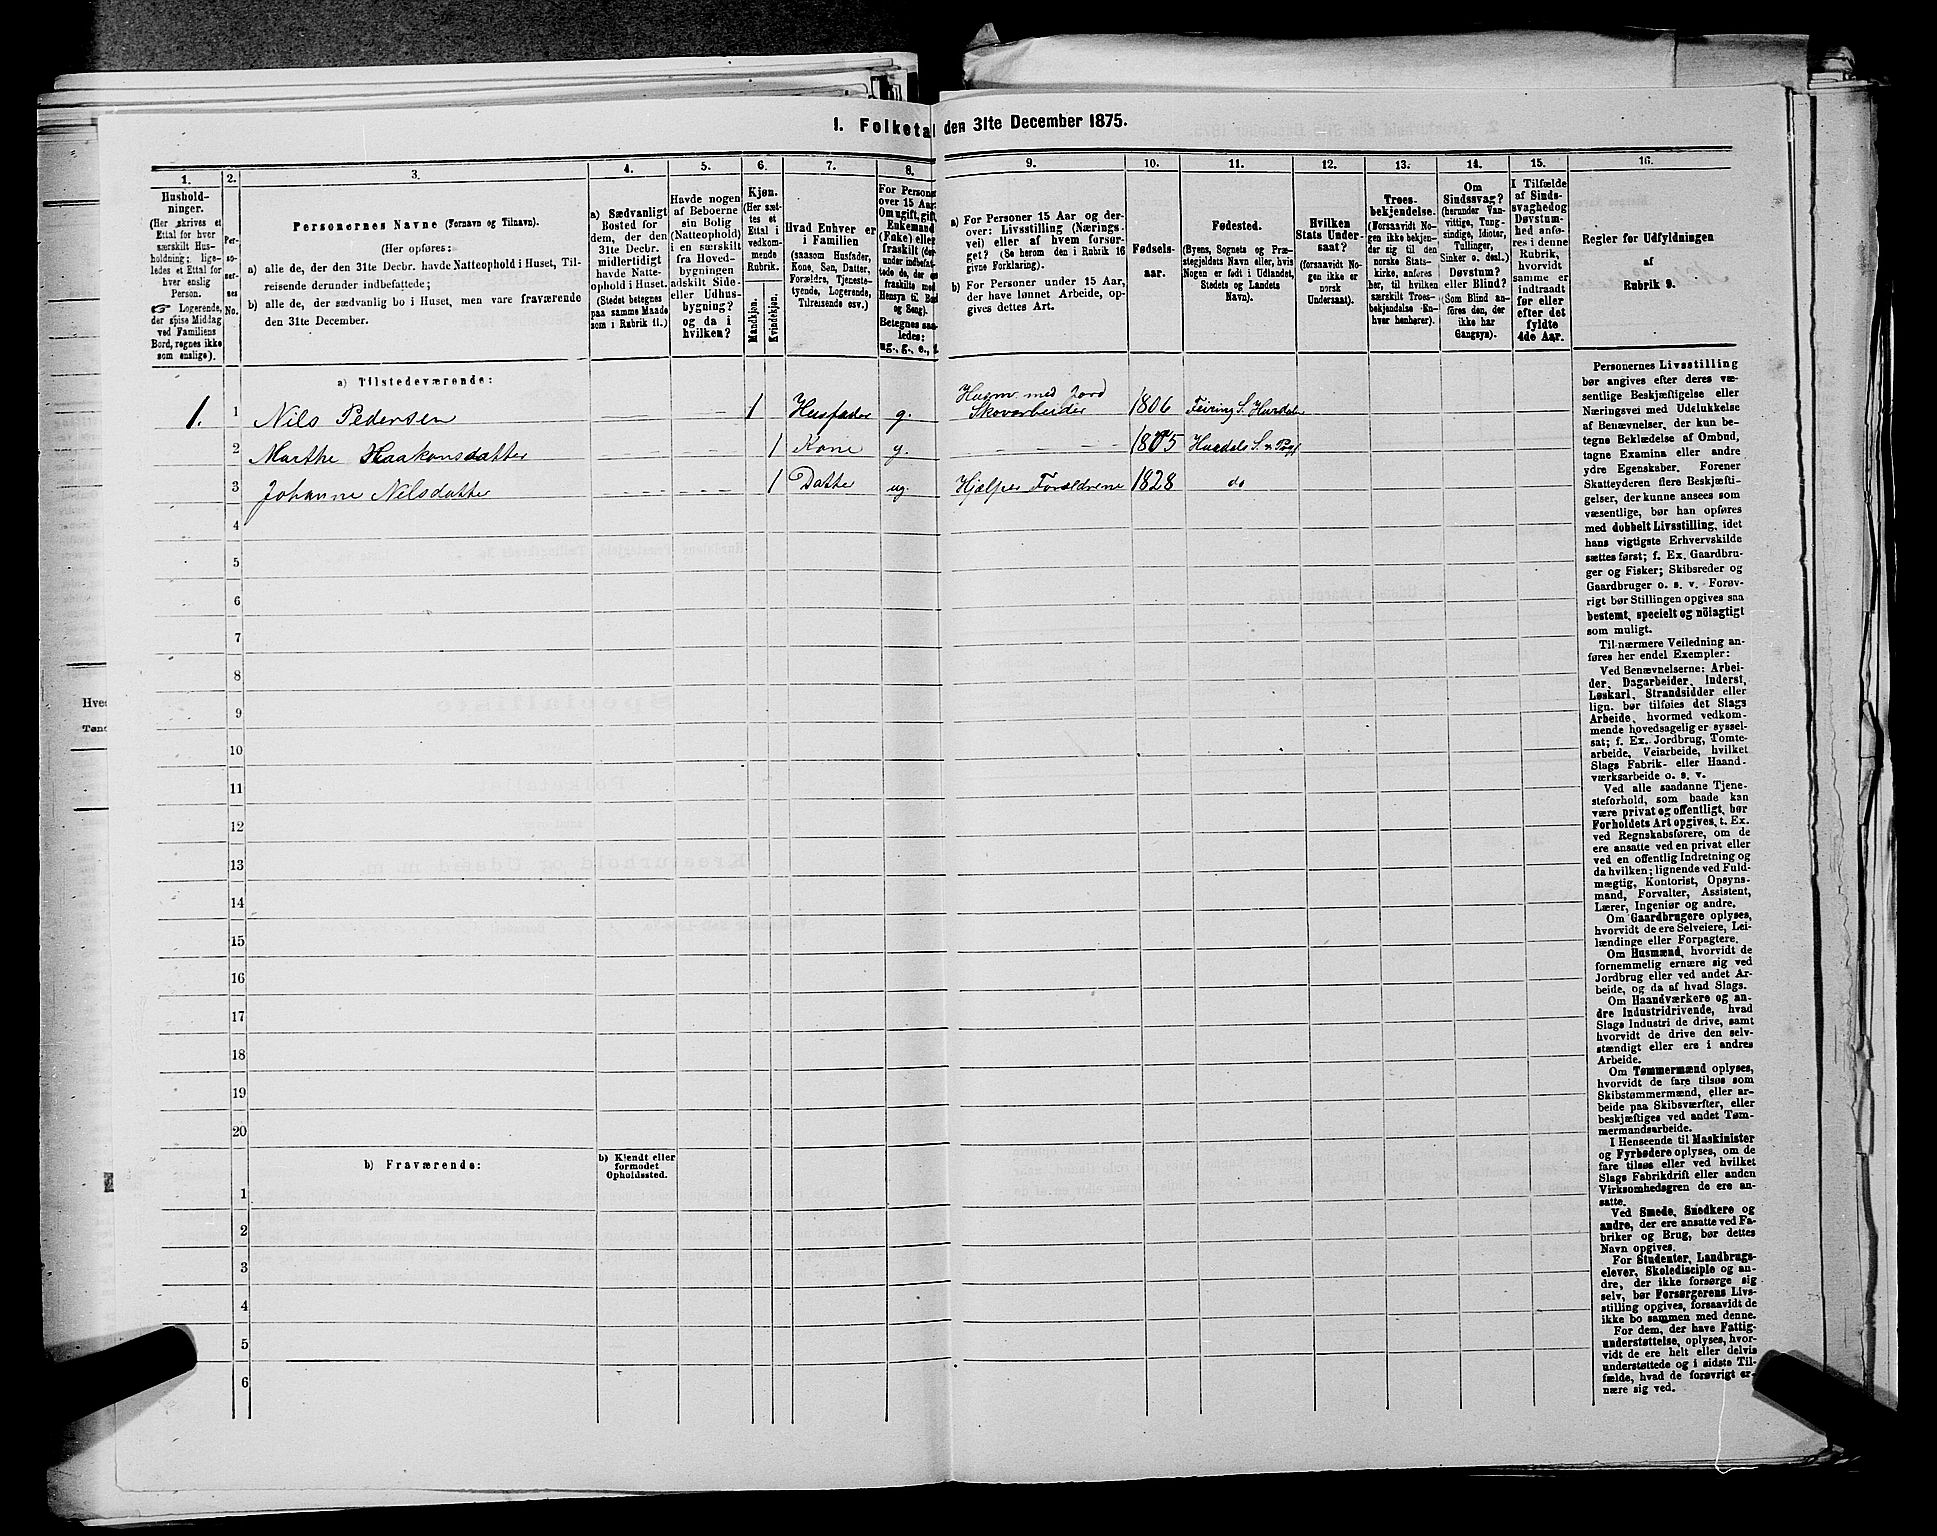 1. Folketal den 31te December 1875.
1.
Hushold-
ninger.
(Her skrives et
Ettal for hver
særskilt Hus-
holdning; lige-
ledes et Ettal for
hver enslig
Person.
Logerende,
der spise Middag
ved Familiens
Bord, regnes ikke
som enslige).
2.
Per-
so-
ner-
nes
No.
3.
Personernes Navne (Fornavn og Tilnavn).
(Her opføres:
a) alle de, der den 31te Decbr. havde Natteophold i Huset, Til-
reisende derunder indbefattede;
b) alle de, der sædvanlig bo i Huset, men vare fraværende
den 31te December.
4.
a) Sædvanligt
Bosted for
dem, der den
31te Decbr.
midlertidigt
havde Natte-
ophold i Huset.
(Stedet betegnes
paa samme Maade
som i Rubrik 11.)
5.
Havde nogen
af Beboerne
sin Bolig
(Natteophold)
i en særskilt
fra Hoved-
bygningen
adskilt Side-
eller Udhus-
bygning?
og da i
hvilken?
6.
Kjøn.
(Her sæt-
tes et
Ettal i
vedkom-
mende
Rubrik.
Mandkjøn.
Kvindekjøn.
7.
Hvad Enhver er
i Familien
(saasom Husfader,
Kone, Søn, Datter,
Forældre, Tjeneste-
tyende, Logerende,
Tilreisende osv.)
8.
For Personer
over 15 Aar:
Om ugift, gift,
Enkemand
(Enke) eller
fraskilt (der-
under indbefat-
tede de, der ere
fraskilte med
Hensyn til Bord
og Seng).
Betegnes saa-
ledes:
ug., g., e., f.
9.
a) For Personer 15 Aar og der-
over: Livsstilling (Nærings-
vei) eller af hvem forsør-
get? (Se herom den i Rubrik 16
givne Forklaring).
b) For Personer under 15 Aar,
der have lønnet Arbeide, op-
gives dettes Art.
10.
Fødsels-
aar.
11.
Fødested.
(Byens, Sognets og Præ-
stegjeldets Navn eller, hvis
Nogen er født i Udlandet,
Stedets og Landets
Navn).
12.
Hvilken
Stats Under-
saat?
(forsaavidt No-
gen ikke er
norsk
Undersaat).
13.
Troes-
bekjendelse.
(Forsaavidt No-
gen ikke bekjen-
der sig til den
norske Stats-
kirke, anføres
her, til hvilken
særskilt Troes-
bekjendelse En-
hver henhører).
14.
Om
Sindssvag?
(herunder Van-
vittige, Tung-
sindige, Idioter,
Tullinger,
Sinker o. desl.)
Døvstum?
eller Blind?
(Som Blind an-
føres den, der
ikke har
Gangsyn).
15.
I Tilfælde
af Sinds-
svaghed og
Døvstum-
hed anfø-
res i denne
Rubrik,
hvorvidt
samme er
indtraadt
før eller
efter det
fyldte
4de Aar.
16.
Regler for Udfyldningen
af
Rubrik 9.
a) Tilstedeværende:
1. 1 Nils Pedersen 1 Husfader g. Husm. med Jord Skovarbeider 1806 Feiring S. Hurdalen
2 Marthe Haakonsdatter 1 Kone g. 1805 Hurdals S. & Pgj
3 Johanne Nilsdatter 1 Datte ug. Hjælper Forældrene 1828 do
4
5
6
7
8
9
10
11
12
13
14
15
16
17
18
19
20
b) Fraværende:
b) Kjendt eller
formodet
Opholdssted.
1
2
3
4
5
6
Personernes Livsstilling
bør angives efter deres væ-
sentlige Beskjæftigelse eller
Næringsvei med Udelukkelse
af Benævnelser, der kun be-
tegne Beklædelse af Ombud,
tagne Examina eller andre
ydre Egenskaber. Forener
Skatteyderen flere Beskjæfti-
gelser, der kunne ansees som
væsentlige, bør han opføres
med dobbelt Livsstilling, idet
hans vigtigste Erhvervskilde
sættes først; f. Ex. Gaardbru-
ger og Fisker; Skibsreder og
Gaardbruger o. s. v. Forøv-
rigt bør Stillingen opgives saa
bestemt, specielt og nöiagtigt
som muligt.
Til nærmere Veiledning an-
føres her endel Exempler:
Ved Benævnelserne: Arbei-
der, Dagarbeider, Inderst,
Løskarl, Strandsidder eller
lign. bør tilføies det Slags
Arbeide, hvormed vedkom-
mende hovedsagelig er syssel-
sat; f. Ex. Jordbrug, Tomte-
arbeide, Veiarbeide, hvilket
Slags Fabrik- eller Haand-
værksarbeide o. s. v.
Ved alle saadanne Tjene-
steforhold, som baade kan
være privat og offentligt, bør
Forholdets Art opgives, t. Ex.
ved Regnskabsførere, om de
ere ansatte ved en privat eller
ved en offentlig Indretning og
da hvilken; lignende ved Fuld-
mægtig, Kontorist, Opsyns-
mand, Forvalter, Assistent,
Lærer, Ingeniør og andre.
Om Gaardbrugere oplyses,
hvorvidt de ere Selveiere, Lei-
lændinge eller Forpagtere.
Om Husmænd, hvorvidt de
fornemmelig ernære sig ved
Jordbrug eller ved andet Ar-
beide, og da af hvad Slags.
Om Haandværkere og an-
dre Industridrivende, hvad
Slags Industri de drive, samt
hvorvidt de drive den selv-
stændigt eller ere i andres
Arbeide.
Om Tømmermænd oplyses,
hvorvidt de fare tilsøs som
Skibstømmermænd, eller ar-
beide paa Skibsværfter, eller
beskjæftiges ved andet Tøm-
mermandsarbeide.
I Henseende til Maskinister
og Fyrbødere oplyses, om de
fare tilsøs eller ved hvilket
Slags Fabrikdrift eller anden
Virksomhedsgren de ere an-
satte.
Ved Smede, Snedkere og
andre, der ere ansatte ved Fa-
briker og Brug, bør dettes
Navn opgives.
For Studenter, Landbrugs-
elever, Skoledisciple og an-
dre, der ikke forsørge sig
selv, bør Forsørgerens Livs-
stilling opgives, forsaavidt de
ikke bo sammen med denne.
For dem, der have Fattig-
understøttelse, oplyses, hvor-
vidt de ere helt eller delvis
understøttede og i sidste Til-
fælde, hvad de forøvrigt er-
nære sig ved.